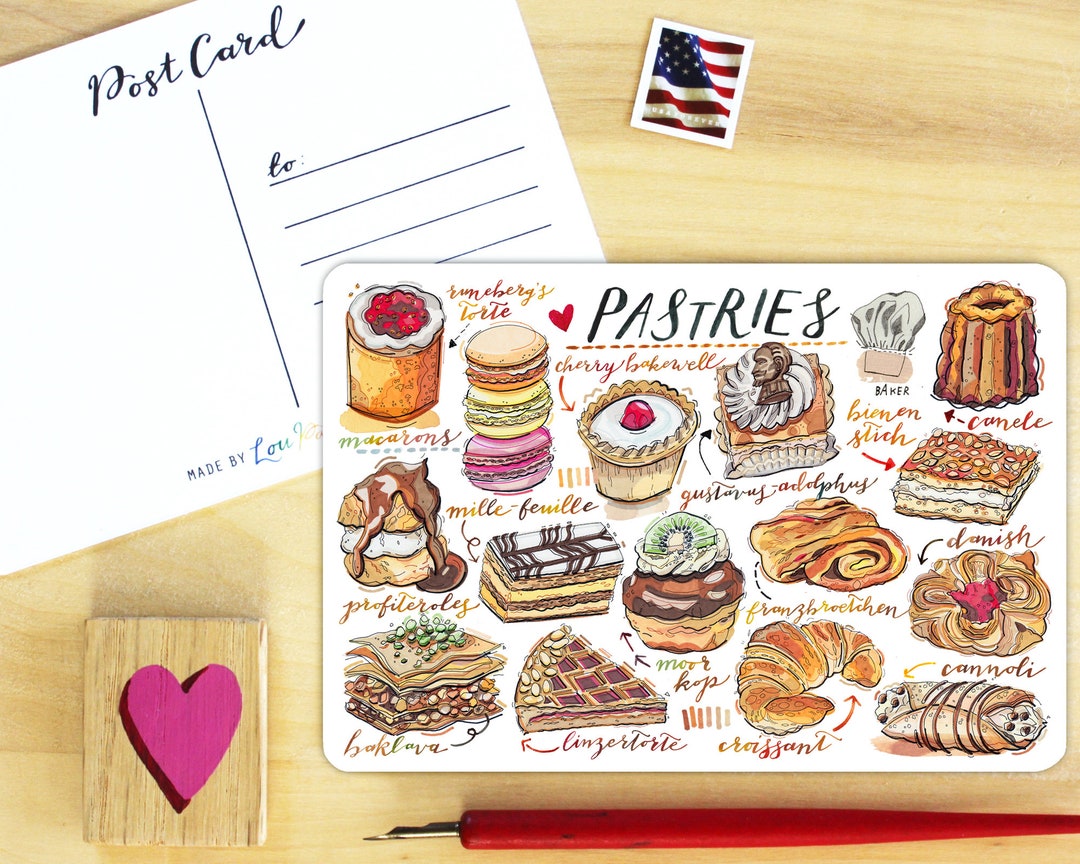 Post Card
to:
MADE BY Lou
USA FOREVER
PASTRIES
runeberg's
torte
macarons
cherry bakewell
BAKER
canele
bienen
stich
gustavus-adolphus
mille-feuille
profiteroles
danish
franzbroetchen
moor
kop
cannoli
baklava
linzertorte
croissant